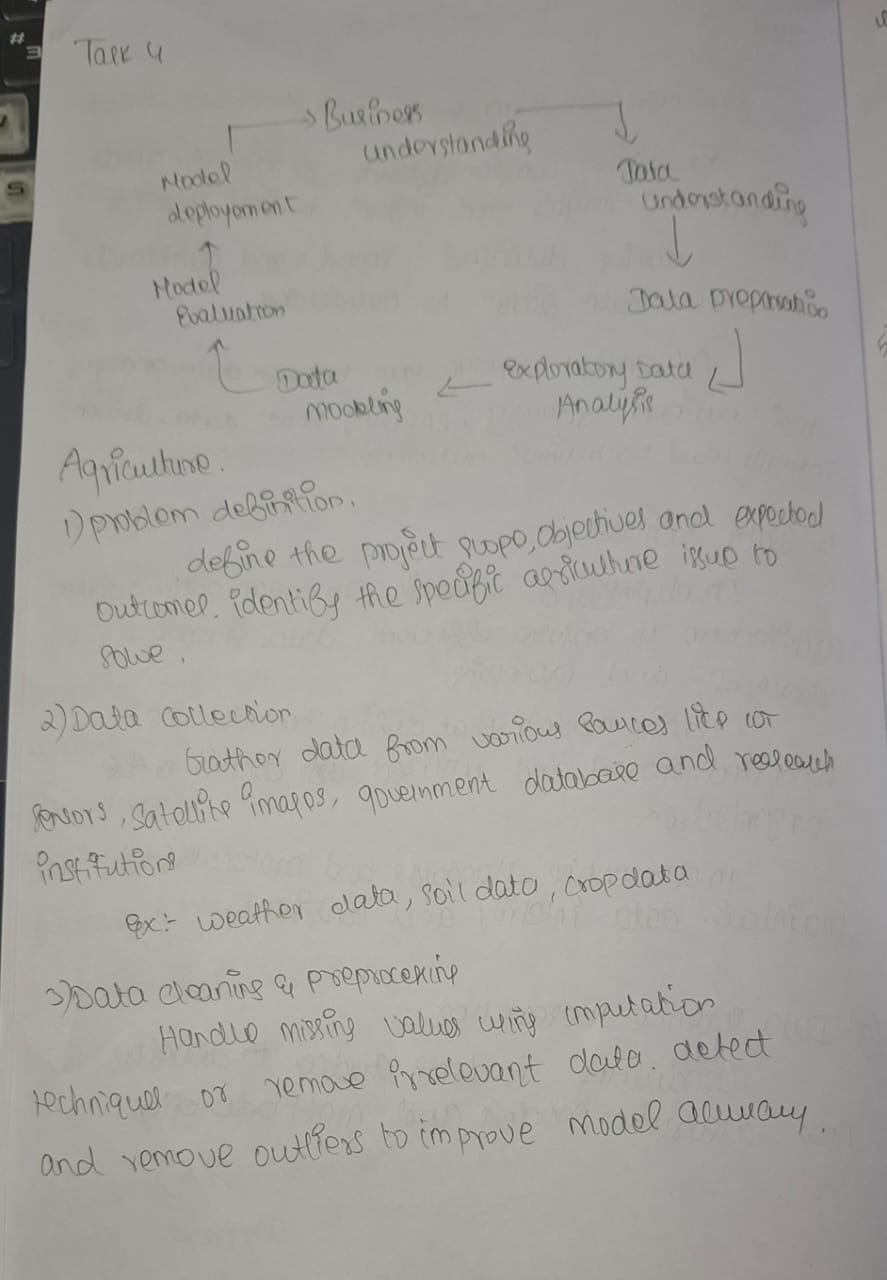 Task 4
Business
understanding
Data
understanding
Data preparation
Exploratory Data
Analysis
Data
modeling
Model
Evaluation
Model
deployoment
Agriculture.
1) problem definition.
define the project scope, objectives and expected
outcomes. identify the specific agriculture issue to
solve.
2) Data collection
Gather data from various sources like
sensors, satellite images, government database and research
institutions
ex:- weather data, soil data, crop data
3) Data cleaning & preprocessing
Handle missing values using imputation
techniques or remove irrelevant data. detect
and remove outliers to improve model accuracy.